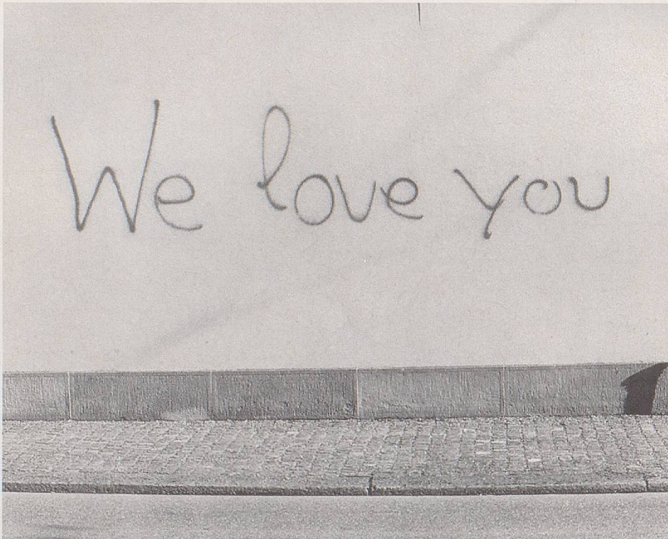 We love you